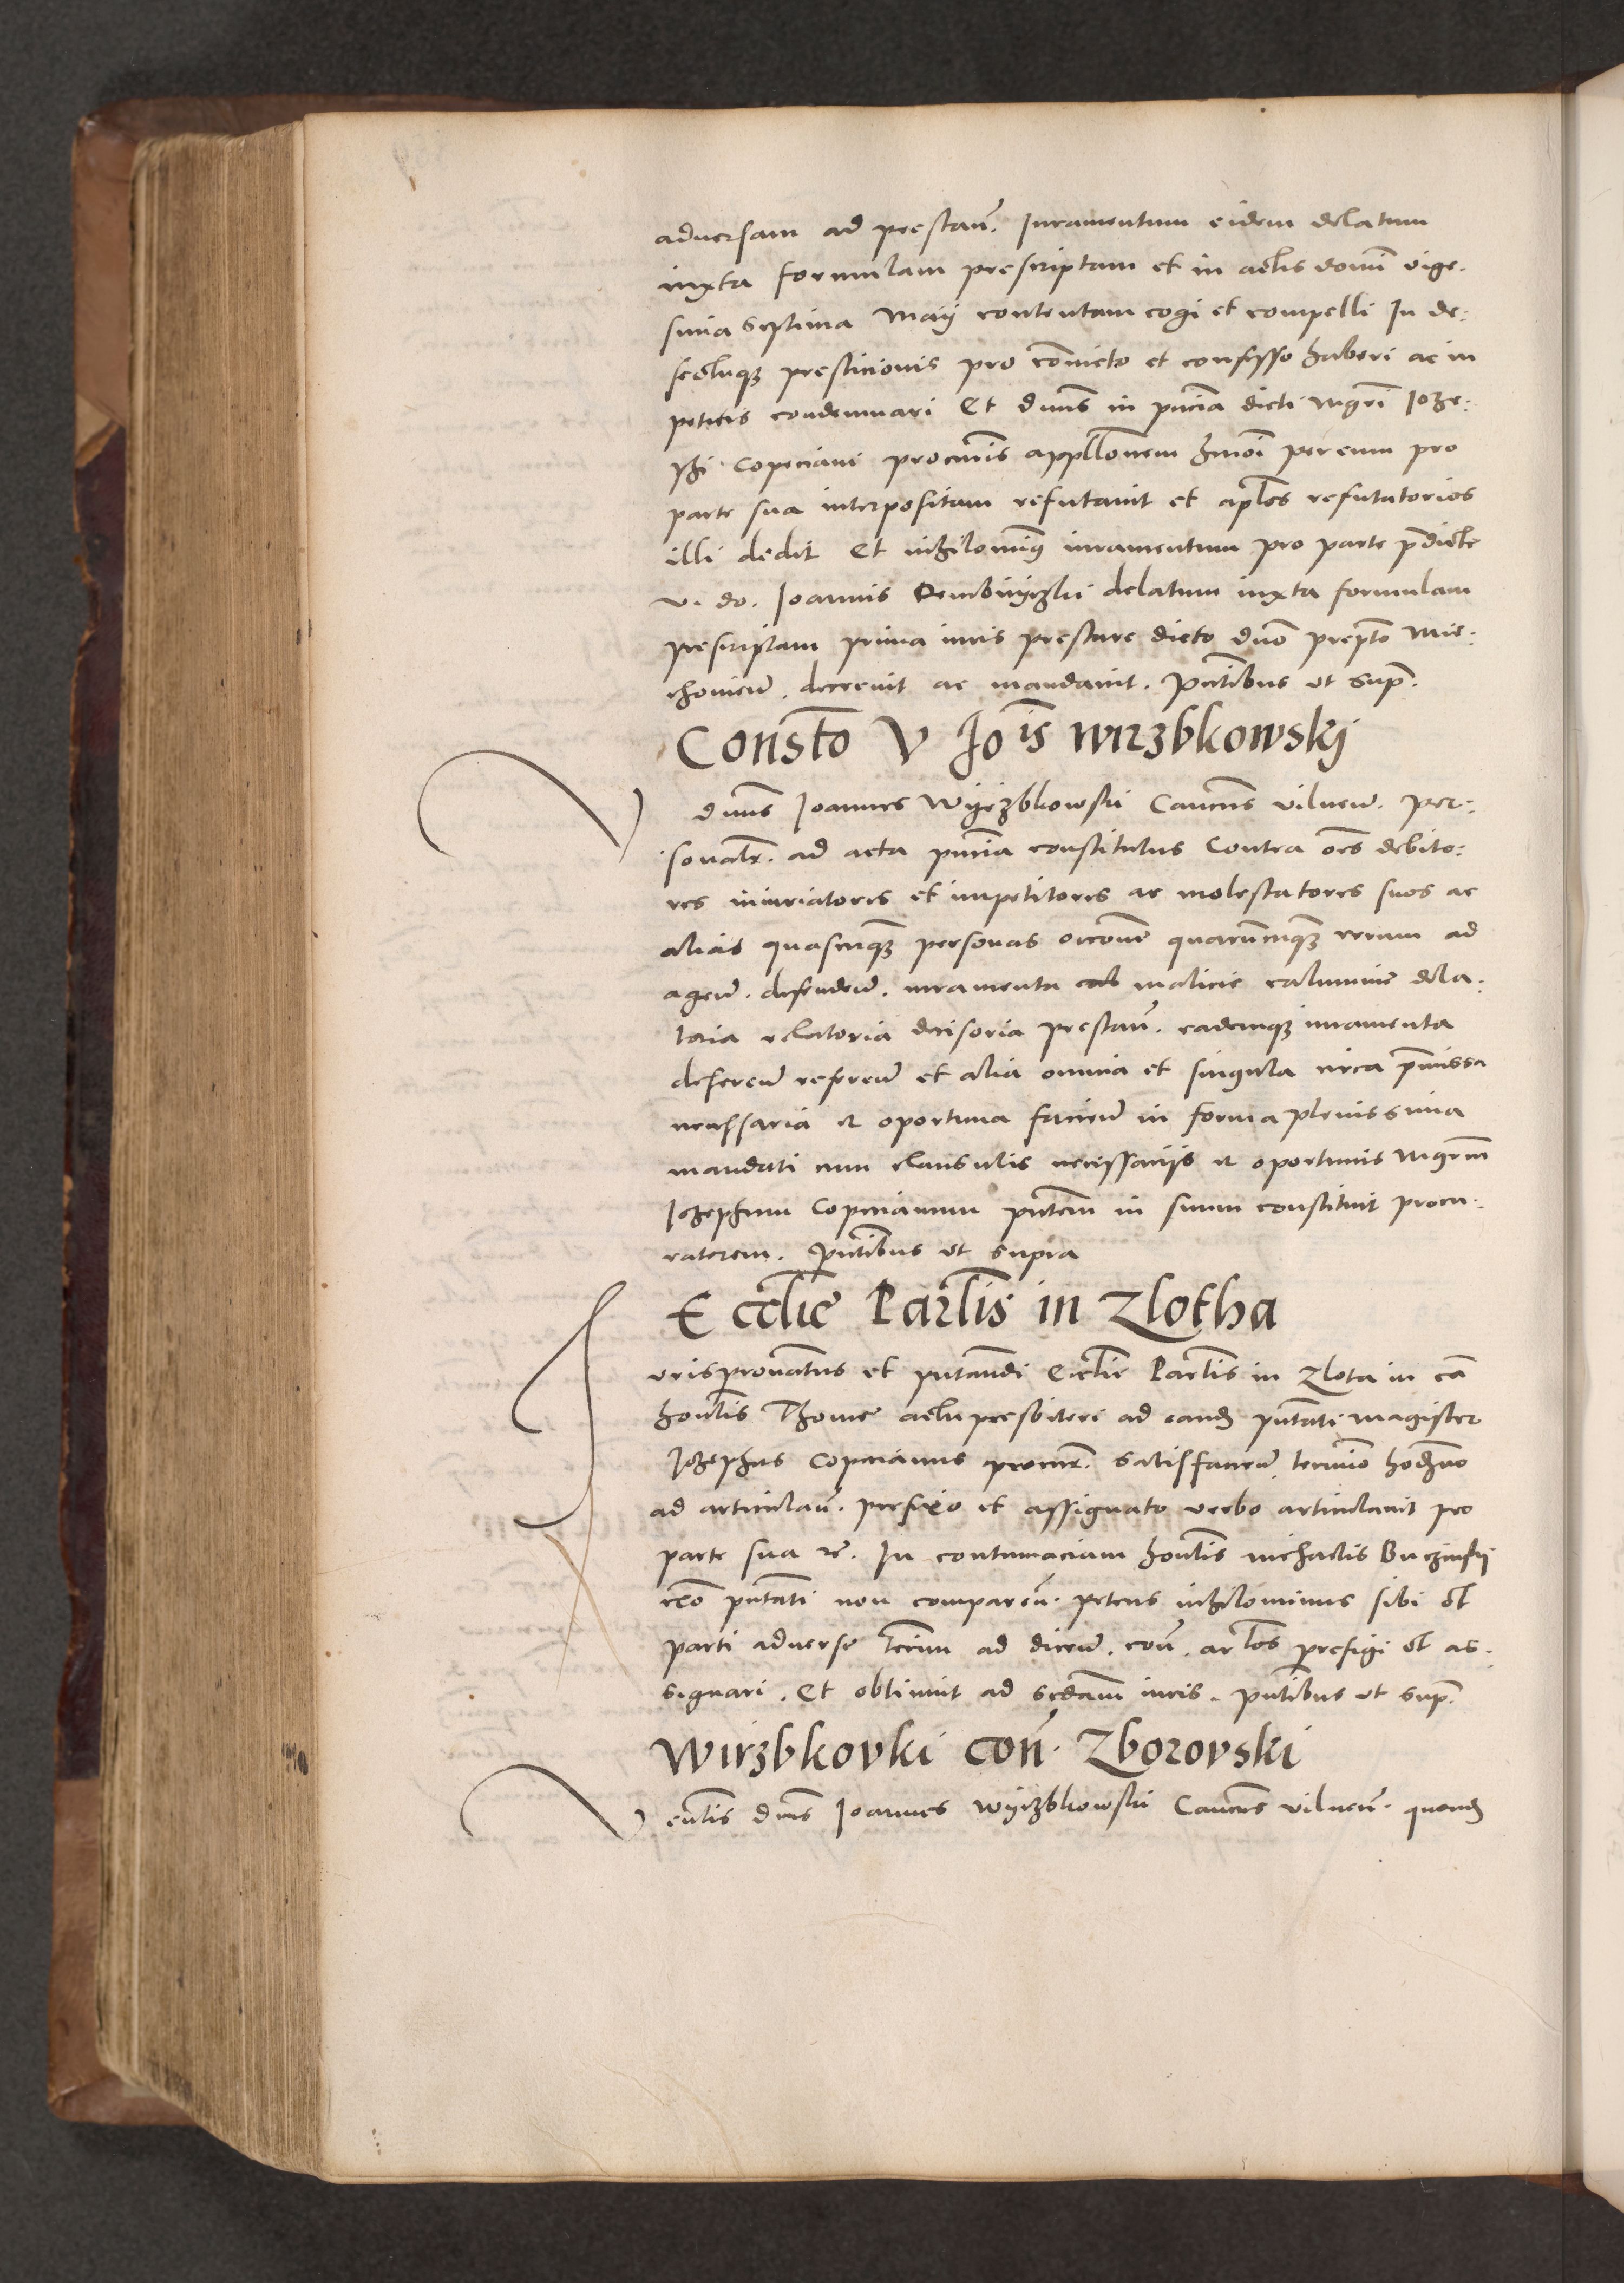 adversam ad prestan̄. Iuramentum eidem delatum
iuxta formulam prescriptam et in actis domi vige.
sima septima Maij contentam cogi et compelli In de:
fectuqȝ presticionis pro cōuicto et confesso haberi ac in
petitis condemnari Et dn̄us in pn̄cia dicti mgr̄i Ioze:
phi Copeciani procur̄is appllōnem hmōi per eum pro
parte sua interpositam refutauit et apl̄os refutatorios
illi dedit Et nihilomīꝰ iuramentum pro parte p̄dicte
v. do. Ioannis delatum iuxta formulam
prescriptam prima iuris prestare dicto dn̄o prepto Mie:
choviēn. decreuit ac mandauit. Pn̄tibus vt sup̄.
Constō V Jois wirzbkowskj
V dn̄us Ioannes Wyrzbkowski Can̄cus vilnen̄. per:
sonalr̄. ad acta pn̄cia constitutus Contra oēs debito:
res iniuriatores et impetitores ac molestatores suos ac
alias quascūqȝ personas oīcōne quarūcūqȝ rerum ad
agen̄. defenden̄. iuramenta malicie calumnie dela:
toria relatoria decisoria prestan̄. eademqȝ iuramenta
deferen̄ referen̄ et alia omnia et singula circa p̄missa
necessaria et oportuna facien̄ in forma plenissima
mandati cum clausulis necessarijs et oportunis Mgr̄m
Iozephum Copecianum pn̄tem in suum constituit procu:
ratorem. Pn̄tibus vt supra
Eccłie Parłis in Zlotha
Iuris pronatus et pn̄tandi Eccłie Parłis in Zlota in cā
honłis Thome actu presbiteri ad eandȝ pn̄tati magister
Iozephus Copecianus procur̄. satisfacien̄. termīo hodrno
ad articulan̄. prefixo et assignato verbo articulauit pro
parte sua rc̄. In contumaciam honłis michaelis
pn̄tati non comparen̄. petens nihilominus sibi et
parti adverse terīm ad dicen̄. con̄. arłos prefigi et as.
signari. Et obtinuit ad scdam iuris. Pn̄tibus vt sup̄.
Wirzbkovki con̄. Zborovski
Venłis dn̄s Ioannes Wyrzbkowski Can̄cus vilnen̄. quendȝ